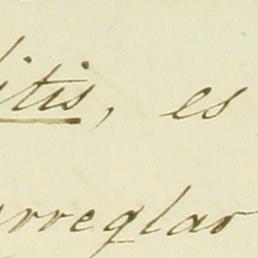 litis, es
arreglar